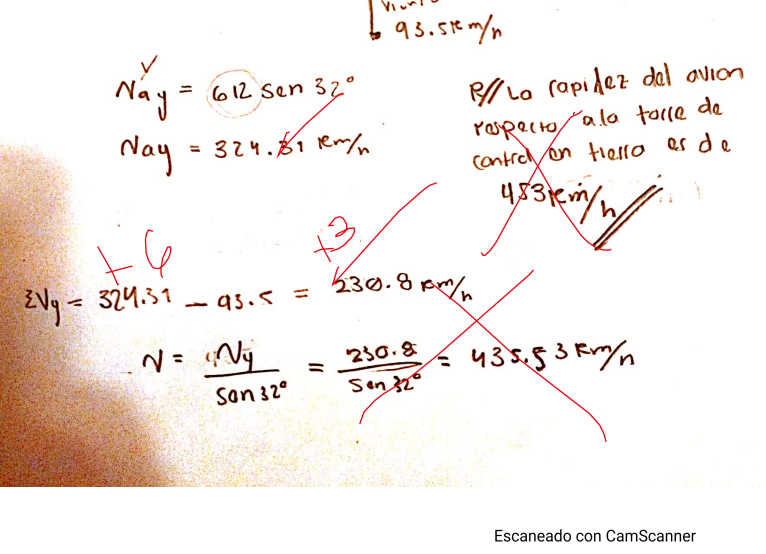 Viento
93.5 km/h
Vay = 612 sen 32°
Vay = 324.31 km/h
R// La rapidez del avion
respecto a la torre de
control en tierra es de
453 km/h
+6
+3
ΣVy = 324.31 - 93.5 = 230.8 km/h
V = Vy / Sen 32° = 230.8 / Sen 32° = 435.53 km/h
Escaneado con CamScanner